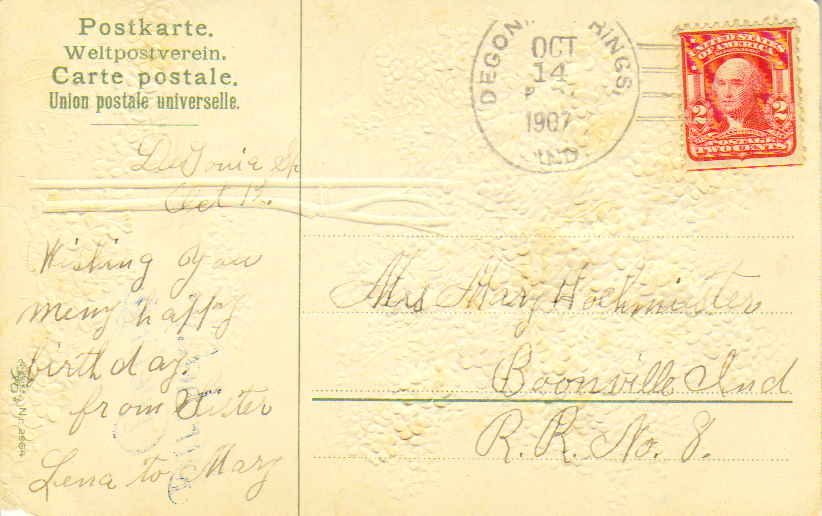 Postkarte.
Weltpostverein.
Carte postale.
Union postale universelle.
DeGonia Sp
Oct 13.
Wishing you
meny happy
birthday.
from Sister
Lena to Mary
DEGON RINGS,
OCT
14
1907
IND
UNITED STATES
OF AMERICA
2 2
POSTAGE
TWO CENTS
Mrs Mary Hochmister
Boonville Ind
R. R. No. 8.